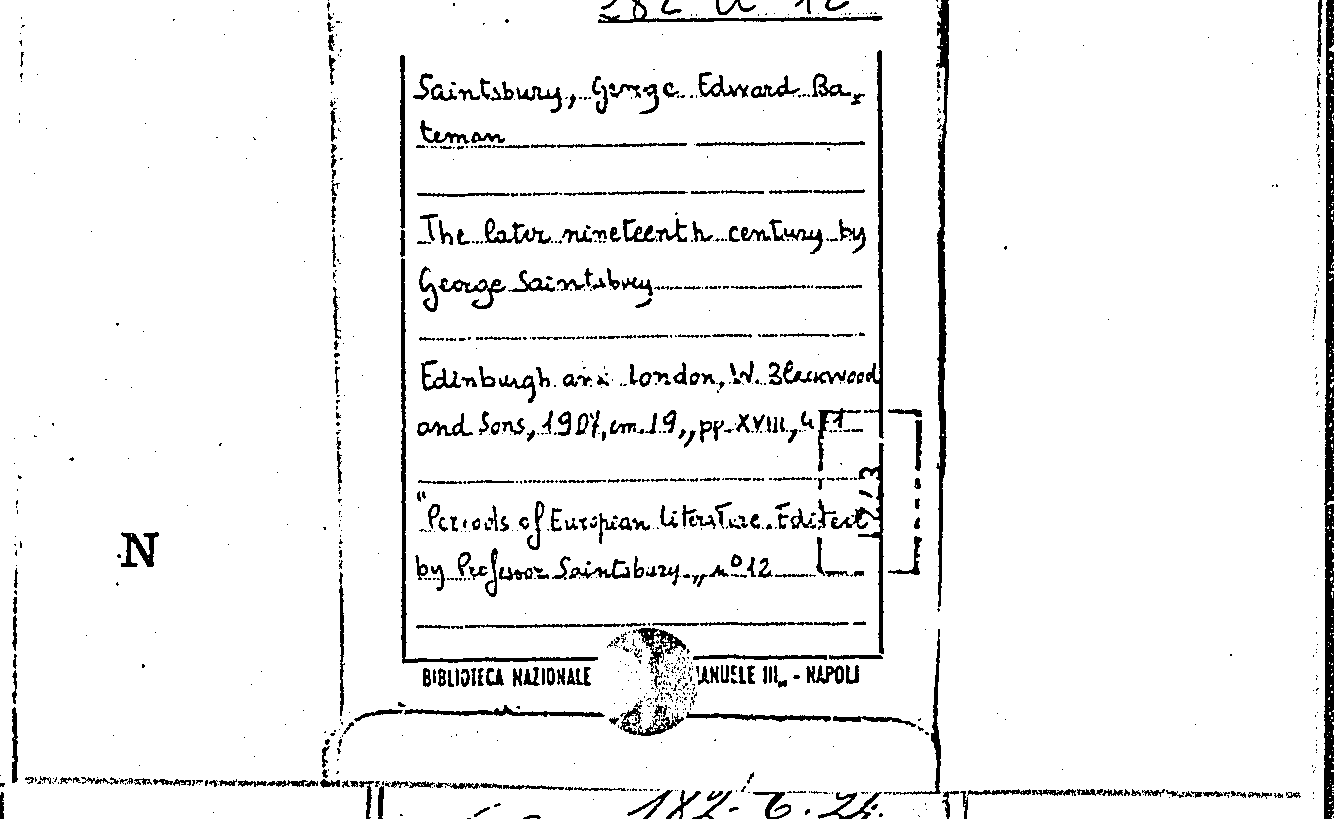 Saintsbury, George Edward Ba-
teman
The later nineteenth century by
George Saintsbury
Edinburgh and London, W. Blackwood
and Sons, 1907, cm. 19,, pp. XVIII, 471
"Periods of European literature. Edited
by Professor Saintsbury,, nº 12
N
BIBLIOTECA NAZIONALE ANUELE III,, - NAPOLI